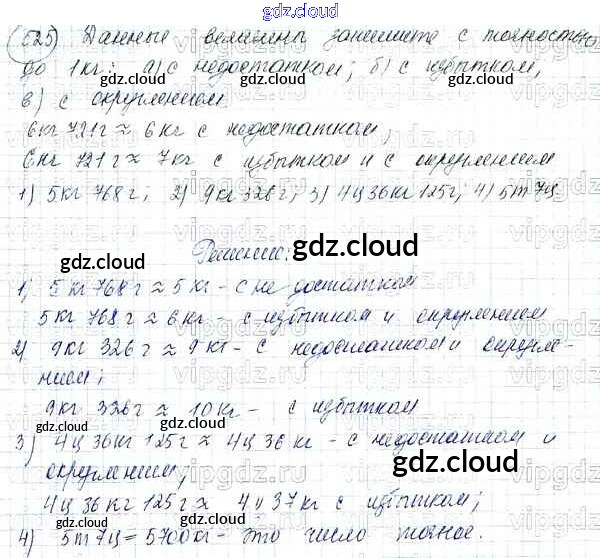 gdz.cloud
525) Данные величины запишите с точностью
до 1 кг: а) с недостатком; б) с избытком,
в) с округлением
6кг 721г ≈ 6 кг с недостатком,
6кг 721г ≈ 7кг с избытком и с округлением
1) 5кг 768г; 2) 9кг 326г; 3) 4ц 36кг 125г; 4) 5т 7ц
Решение:
gdz.cloud
1) 5 кг 768г ≈ 5 кг - с недостатком
5кг 768г ≈ 6кг - с избытком и округлением
2) 9кг 326г ≈ 9 кг - с недостатком и округле-
нием;
9кг 326г ≈ 10кг - с избытком
3) 4ц 36кг 125г ≈ 4ц 36 кг - с недостатком и
округлением;
4ц 36кг 125г ≈ 4ц 37кг с избытком;
4) 5т 7ц = 5700кг - это число точное.